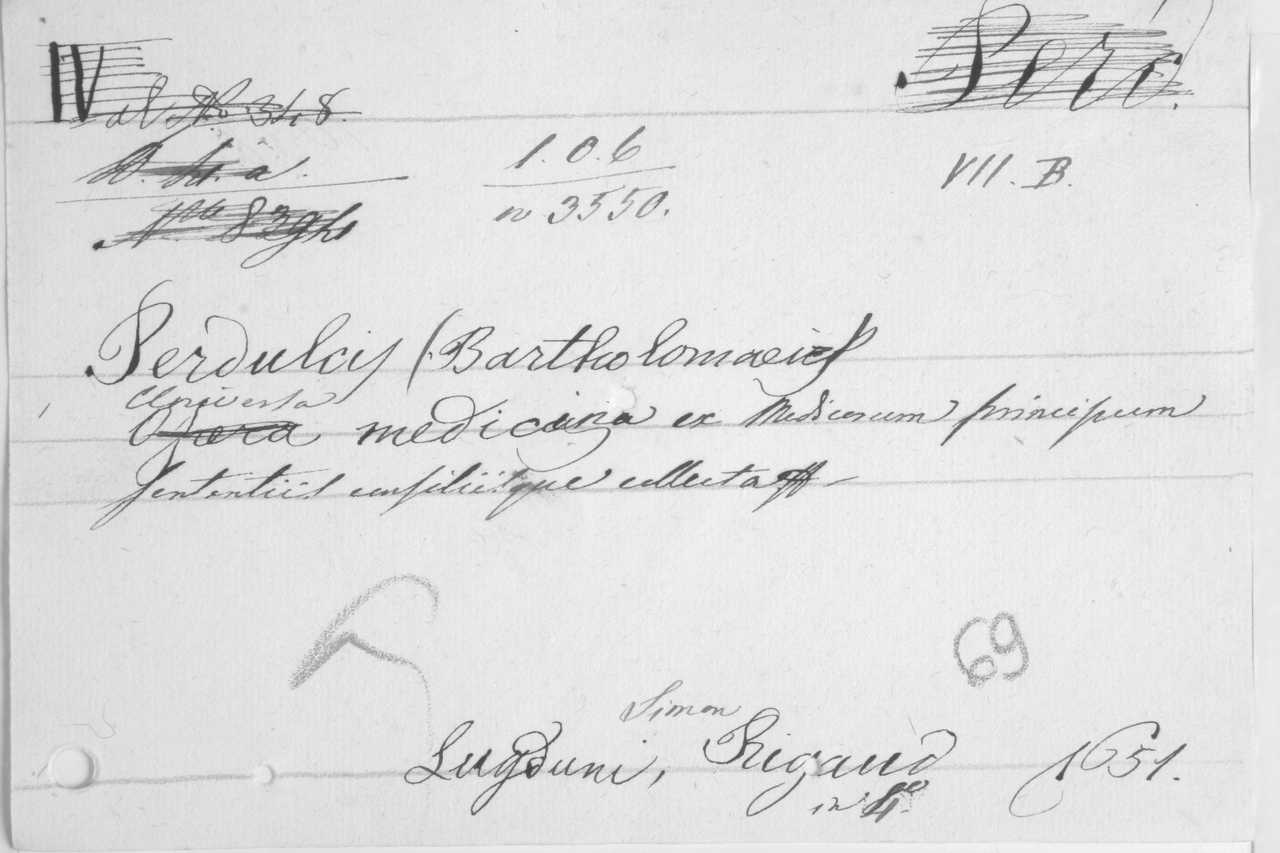 IV
al. No 348.
Perd.
D. H. a.
1.0.6
VII. B.
Nro 8394
n 3550.
Perdulcis (Bartholomaei)
Universa
Opera medicina ex Medicorum principum
sententiis consiliisque collecta
69
Simon
Lugduni, Rigaud 1651.
in 4o.